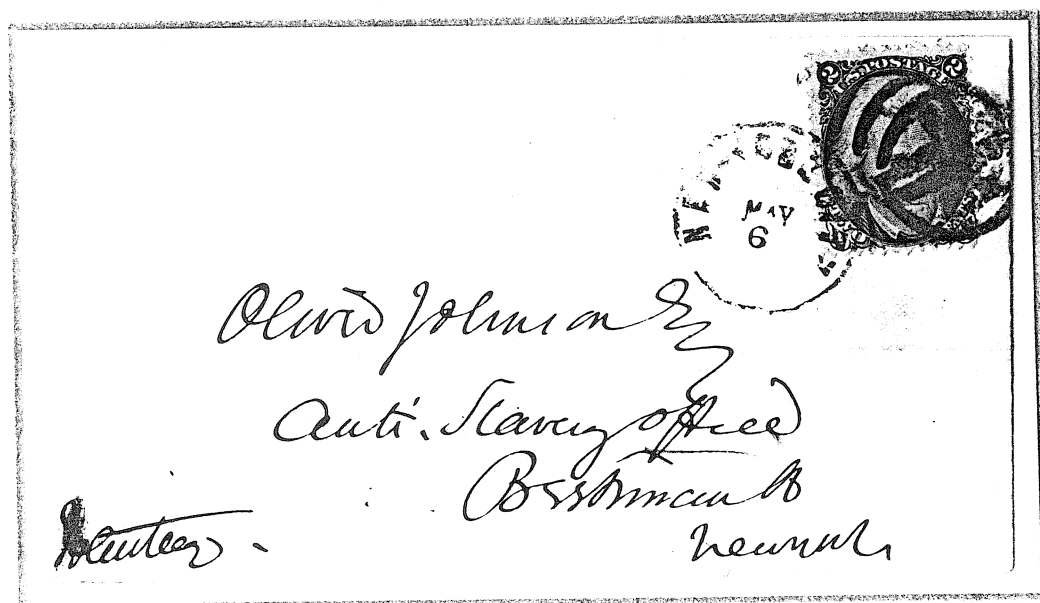 2 U.S. POSTAGE 2
NEW YORK
MAY
6
Oliver Johnson Esq
Anti-Slavery office
Beekman St
New York